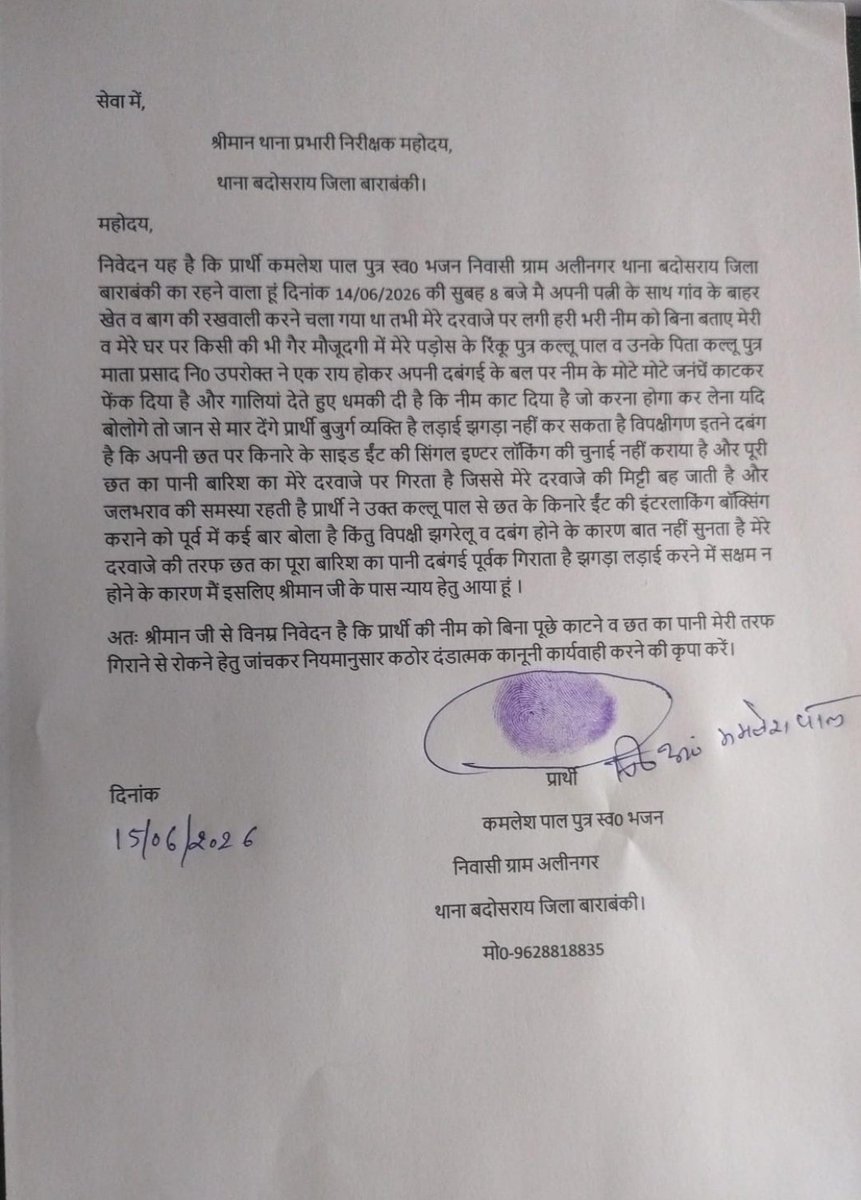 सेवा में,
श्रीमान थाना प्रभारी निरीक्षक महोदय,
थाना बदोसराय जिला बाराबंकी।
महोदय,
निवेदन यह है कि प्रार्थी कमलेश पाल पुत्र स्व0 भजन निवासी ग्राम अलीनगर थाना बदोसराय जिला
बाराबंकी का रहने वाला हूं दिनांक 14/06/2026 की सुबह 8 बजे मै अपनी पत्नी के साथ गांव के बाहर
खेत व बाग की रखवाली करने चला गया था तभी मेरे दरवाजे पर लगी हरी भरी नीम को बिना बताए मेरी
व मेरे घर पर किसी की भी गैर मौजूदगी में मेरे पड़ोस के रिंकू पुत्र कल्लू पाल व उनके पिता कल्लू पुत्र
माता प्रसाद नि0 उपरोक्त ने एक राय होकर अपनी दबंगई के बल पर नीम के मोटे मोटे जनंघें काटकर
फेंक दिया है और गालियां देते हुए धमकी दी है कि नीम काट दिया है जो करना होगा कर लेना यदि
बोलोगे तो जान से मार देंगे प्रार्थी बुजुर्ग व्यक्ति है लड़ाई झगड़ा नहीं कर सकता है विपक्षीगण इतने दबंग
है कि अपनी छत पर किनारे के साइड ईंट की सिंगल इण्टर लॉकिंग की चुनाई नहीं कराया है और पूरी
छत का पानी बारिश का मेरे दरवाजे पर गिरता है जिससे मेरे दरवाजे की मिट्टी बह जाती है और
जलभराव की समस्या रहती है प्रार्थी ने उक्त कल्लू पाल से छत के किनारे ईंट की इंटरलाकिंग बॉक्सिंग
कराने को पूर्व में कई बार बोला है किंतु विपक्षी झगरेलू व दबंग होने के कारण बात नहीं सुनता है मेरे
दरवाजे की तरफ छत का पूरा बारिश का पानी दबंगई पूर्वक गिराता है झगड़ा लड़ाई करने में सक्षम न
होने के कारण मैं इसलिए श्रीमान जी के पास न्याय हेतु आया हूं ।
अतः श्रीमान जी से विनम्र निवेदन है कि प्रार्थी की नीम को बिना पूछे काटने व छत का पानी मेरी तरफ
गिराने से रोकने हेतु जांचकर नियमानुसार कठोर दंडात्मक कानूनी कार्यवाही करने की कृपा करें।
कमलेश पाल
प्रार्थी
दिनांक
15/06/2026
कमलेश पाल पुत्र स्व0 भजन
निवासी ग्राम अलीनगर
थाना बदोसराय जिला बाराबंकी।
मो0-9628818835